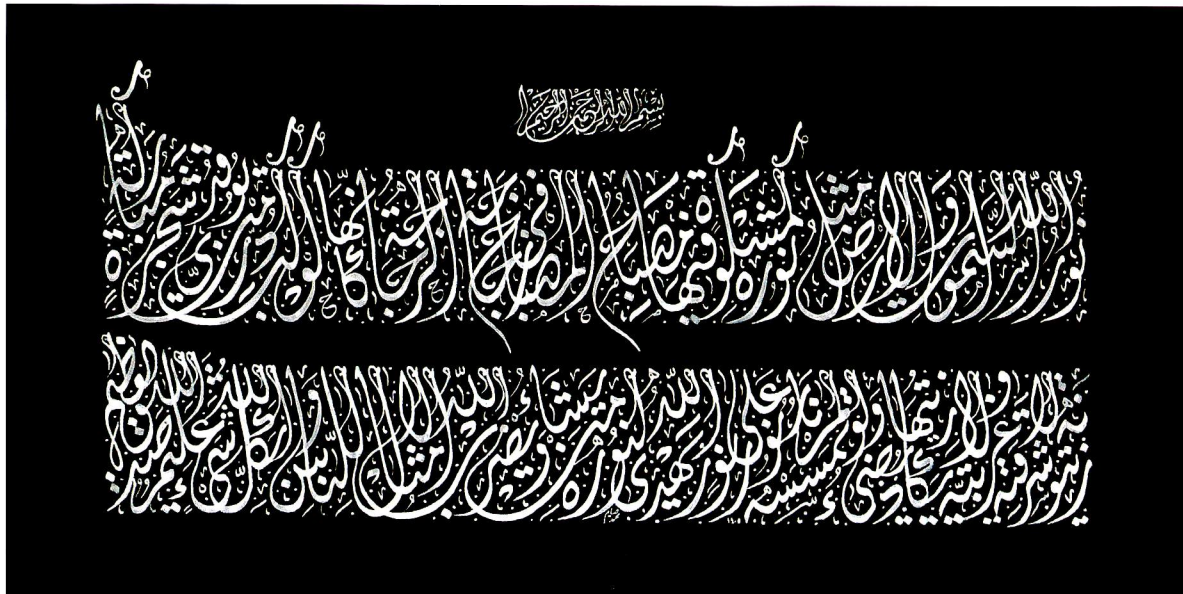 بسم الله الرحمن الرحيم
الله نور السموات والارض مثل نوره كمشكوة فيها مصباح المصباح في زجاجة الزجاجة كانها كوكب دري يوقد من شجرة مباركة
زيتونة لا شرقية ولا غربية يكاد زيتها يضيء ولو لم تمسسه نار نور على نور يهدي الله لنوره من يشاء ويضرب الله الامثال للناس والله بكل شيء عليم صدق الله العظيم